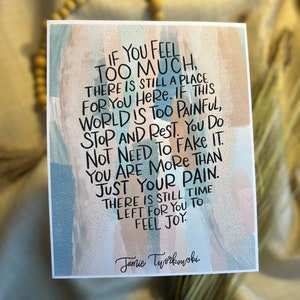 IF YOU FEEL
TOO MUCH,
THERE IS STILL A PLACE
FOR YOU HERE. IF THIS
WORLD IS TOO PAINFUL,
STOP AND REST. YOU DO
NOT NEED TO FAKE IT.
YOU ARE MORE THAN
JUST YOUR PAIN.
THERE IS STILL TIME
LEFT FOR YOU TO
FEEL JOY.
Jamie Tworkowski